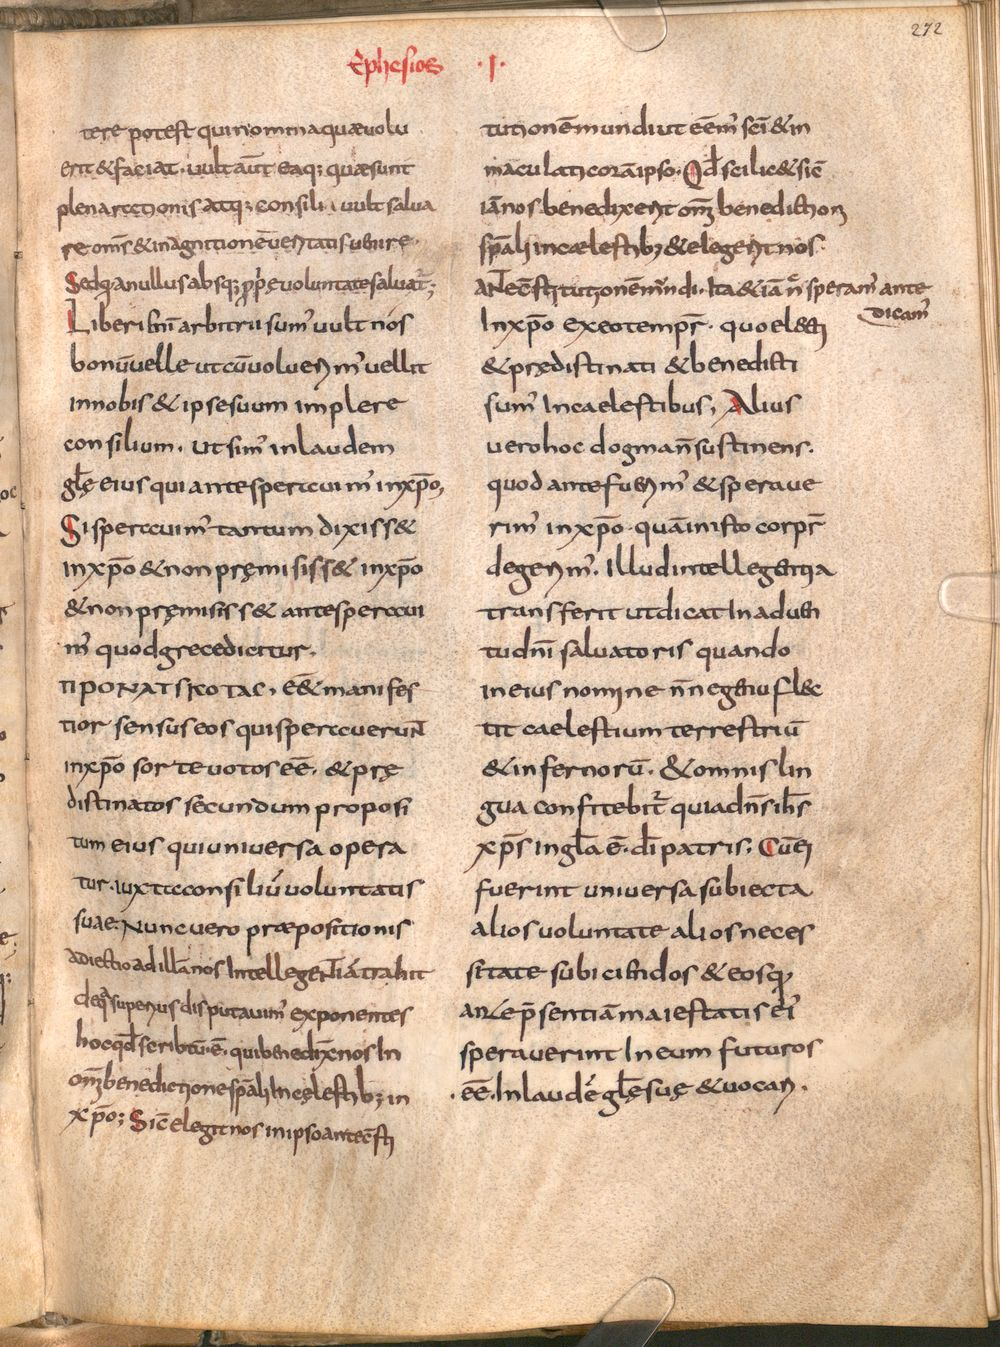 272
Ephesios ·I·
tere potest qui non omnia quae volu
erit & faciat · vult aūt eaq; quae sunt
plena rectionis atq; consilii vult salva
re om̄s & in agnitionē veritatis venire·
Sed q̄a nullus absq; ppę voluntate salvat̄;
Liberi enī arbitrii sum' vult nos
bonū velle ut cū voluerim' vellit
in nobis & ipse suum implere
consilium. ut sim' in laudem
gl̄ę eius qui ante speravim' in xp̄o,
Si speravim' tantum dixiss&
in xp̄o & non pręmisiss& in xp̄o
& non pręmisiss& ante speravi
m' quod grece dicitur.
ΠΡΟΗΛΠΙΚΟΤΑϹ, eēt manifes
tior sensus eos qui speraverunt
in xp̄o sorte votos eē. & prę
distinatos secundum proposi
tum eius qui universa opera
tur. iuxta consiliū voluntatis
suae. Nunc vero praepositionis
adiectio ad illā nos Intellegentiā trahit
de q̄ superius disputavim' exponentes
hoc qd̄ scribtū ē, qui benedixit nos In
om̄i benedictione sp̄ali In cęlestib; in
xp̄o; Sic elegit nos in ipso ante cōsti
tutionē mundi ut eēm' sc̄i & in
maculati corā ipso. Qd̄ scilic& sic
iā nos benedixerit om̄i benediction
sp̄ali in caelestib; & elegerit nos
ante cōstitutionē mundi. Ita & iā n̄ speram' ante
dicam'
In xp̄o ex eo tempr̄. quo electi
& prędistinati & benedicti
sum' In caelestibus, Alius
vero hoc dogma n̄ sustinens.
quod ante fuerim' & sperave
rim' in xp̄o quā in isto corpr̄
degerem'. Illud intellegentia
transferit ut dicat In adven
tu dn̄i salvatoris quando
in eius nomine n̄ne genu flec
tit caelestium terrestriū
& infernorū. & omnis lin
gua confitebit̄ quia dn̄s ih̄s
xp̄s in gl̄a ē. dī patris. Cū ei
fuerint universa subiecta
alios voluntate alios neces
sitate subiciendos & eos q̄
ante p̄sentiā maiestatis ei'
speraverint In eum futuros
eē. In laudē gl̄ę suę & vocari.